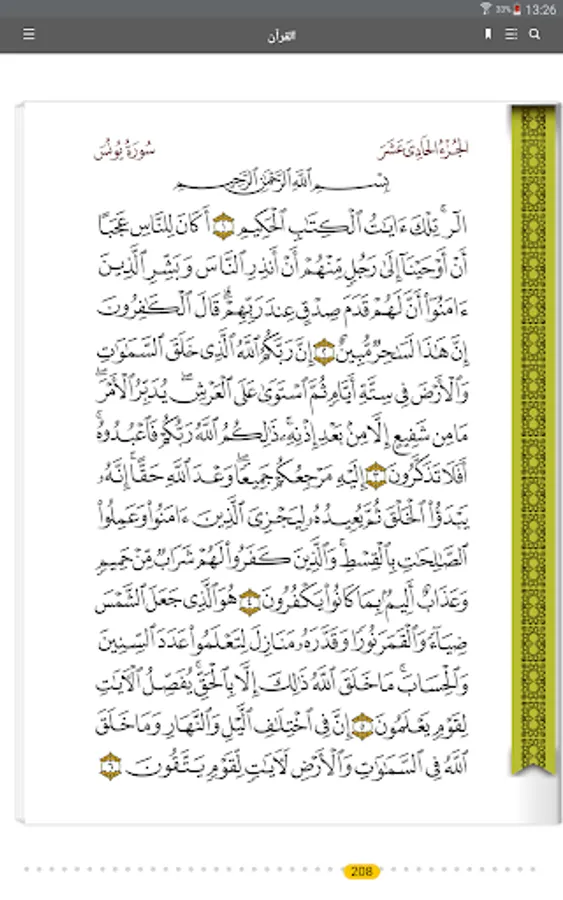 33% 13:26
القرآن
الجُزْءُ الحَادِى عَشَرَ سُورَةُ يُونُسَ
بِسْمِ اللَّهِ الرَّحْمَٰنِ الرَّحِيمِ
الٓر ۚ تِلْكَ ءَايَٰتُ الْكِتَٰبِ الْحَكِيمِ ١ أَكَانَ لِلنَّاسِ عَجَبًا
أَنْ أَوْحَيْنَآ إِلَىٰ رَجُلٍ مِّنْهُمْ أَنْ أَنذِرِ النَّاسَ وَبَشِّرِ الَّذِينَ
ءَامَنُوٓا۟ أَنَّ لَهُمْ قَدَمَ صِدْقٍ عِندَ رَبِّهِمْ ۗ قَالَ الْكَٰفِرُونَ
إِنَّ هَٰذَا لَسَٰحِرٌ مُّبِينٌ ٢ إِنَّ رَبَّكُمُ اللَّهُ الَّذِى خَلَقَ السَّمَٰوَٰتِ
وَالْأَرْضَ فِى سِتَّةِ أَيَّامٍ ثُمَّ اسْتَوَىٰ عَلَى الْعَرْشِ ۖ يُدَبِّرُ الْأَمْرَ ۖ
مَا مِن شَفِيعٍ إِلَّا مِنۢ بَعْدِ إِذْنِهِۦ ۚ ذَٰلِكُمُ اللَّهُ رَبُّكُمْ فَاعْبُدُوهُ ۚ
أَفَلَا تَذَكَّرُونَ ٣ إِلَيْهِ مَرْجِعُكُمْ جَمِيعًا ۖ وَعْدَ اللَّهِ حَقًّا ۚ إِنَّهُۥ
يَبْدَؤُا۟ الْخَلْقَ ثُمَّ يُعِيدُهُۥ لِيَجْزِىَ الَّذِينَ ءَامَنُوا۟ وَعَمِلُوا۟
الصَّٰلِحَٰتِ بِالْقِسْطِ ۚ وَالَّذِينَ كَفَرُوا۟ لَهُمْ شَرَابٌ مِّنْ حَمِيمٍ
وَعَذَابٌ أَلِيمٌۢ بِمَا كَانُوا۟ يَكْفُرُونَ ٤ هُوَ الَّذِى جَعَلَ الشَّمْسَ
ضِيَآءً وَالْقَمَرَ نُورًا وَقَدَّرَهُۥ مَنَازِلَ لِتَعْلَمُوا۟ عَدَدَ السِّنِينَ
وَالْحِسَابَ ۚ مَا خَلَقَ اللَّهُ ذَٰلِكَ إِلَّا بِالْحَقِّ ۚ يُفَصِّلُ الْءَايَٰتِ
لِقَوْمٍ يَعْلَمُونَ ٥ إِنَّ فِى اخْتِلَٰفِ الَّيْلِ وَالنَّهَارِ وَمَا خَلَقَ
اللَّهُ فِى السَّمَٰوَٰتِ وَالْأَرْضِ لَءَايَٰتٍ لِّقَوْمٍ يَتَّقُونَ ٦
208